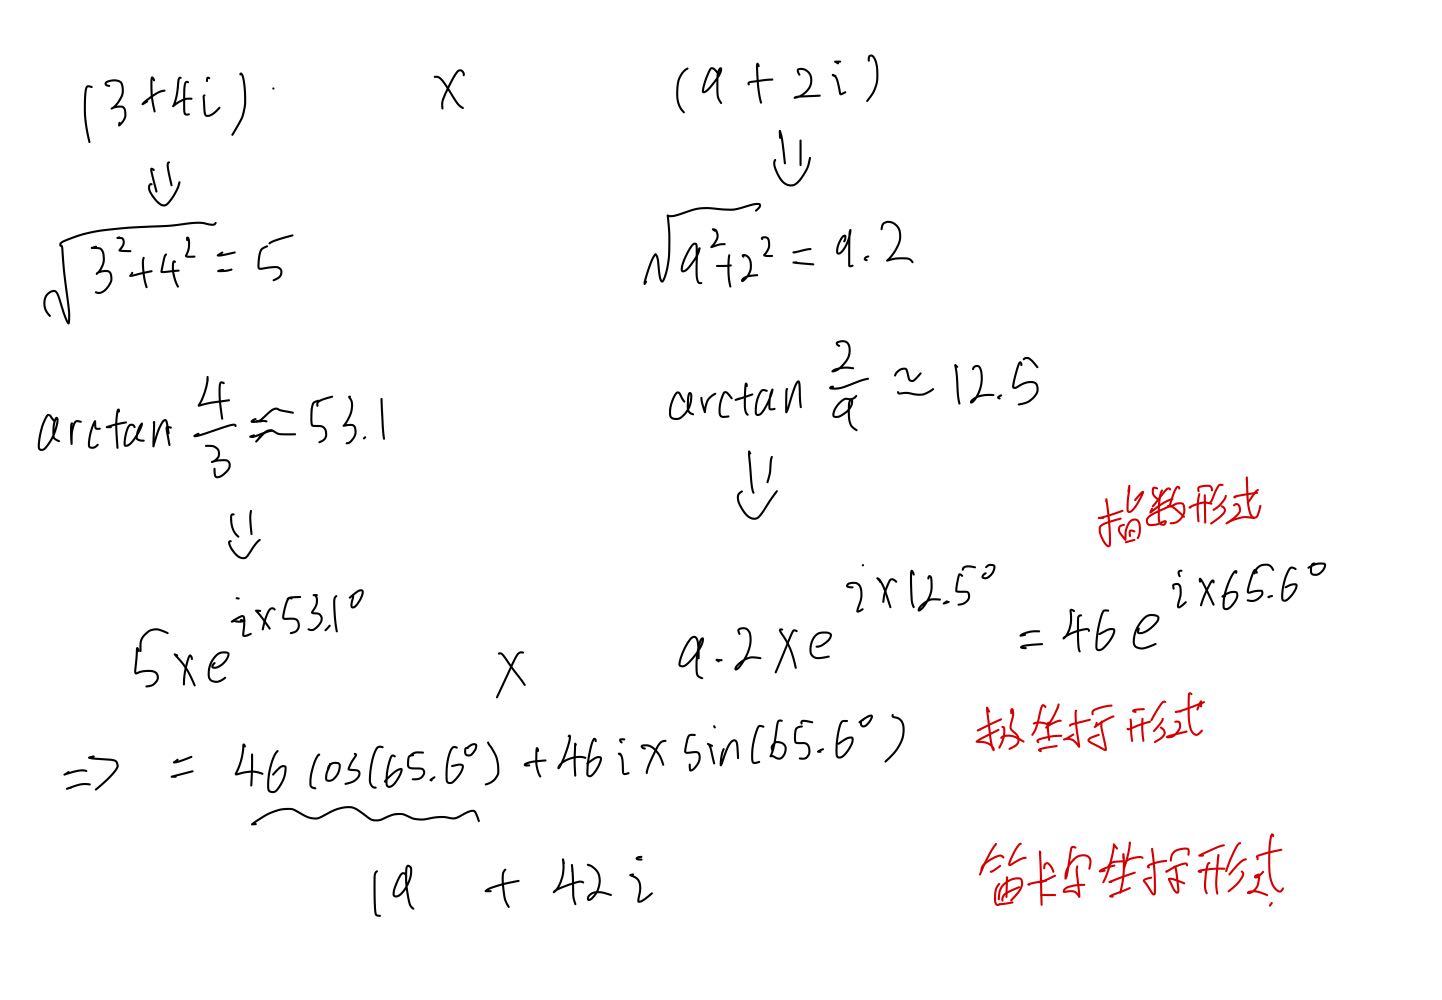 (3+4i) × (9+2i)
⇓ ⇓
√(3²+4²) = 5 √(9²+2²) = 9.2
arctan 4/3 ≈ 53.1 arctan 2/9 ≃ 12.5
⇓ ⇓
指数形式
5×e^(i×53.1°) × 9.2×e^(i×12.5°) = 46e^(i×65.6°)
=> = 46cos(65.6°) + 46i×sin(65.6°) 极坐标形式
19 + 42i 笛卡尔坐标形式